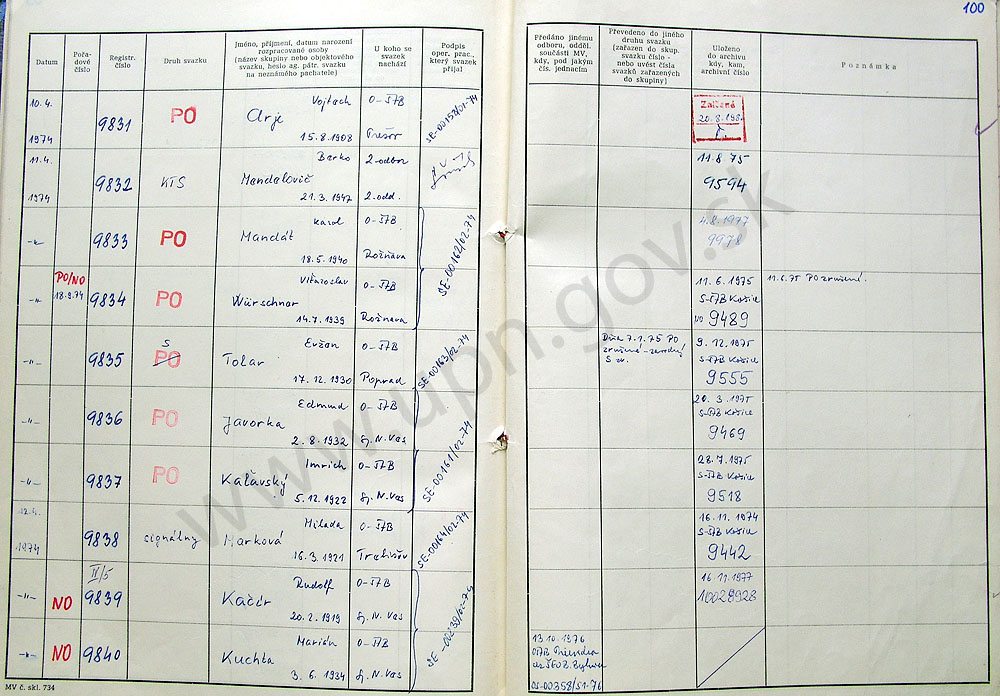 100
Datum
Pořadové číslo
Registr. číslo
Druh svazku
Jméno, příjmení, datum narození
rozpracované osoby
(název skupiny nebo objektového
svazku, heslo ag. pátr. svazku
na neznámého pachatele)
U koho se
svazek
nachází
Podpis
oper. prac.,
který svazek
přijal
Předáno jinému
odboru, odděl.
součásti MV,
kdy, pod jakým
čís. jednacím
Převedeno do jiného
druhu svazku
(zařazen do skup.
svazku číslo -
nebo uvést čísla
svazků zařazených
do skupiny)
Uloženo
do archivu
kdy, kam,
archivní číslo
Poznámka
10.4.
1974
9831
PO
Vojtech
15.8.1908
O-ŠTB
Prešov
SE-00158/01-74
Zničené
20.8.198
11.4.
1974
9832
KTS
Barko
Mandelovič
21.3.1947
2. odbor
2. odd.
11.8.75
9594
-"-
9833
PO
Karol
Mandát
18.5.1940
O-ŠTB
Rožňava
SE-00162/02-74
4.8.1977
9978
-"-
PO/NO
18.9.74
9834
PO
Würschner
14.7.1939
O-ŠTB
Rožňava
11.6.1975
S-ŠTB Košice
NO 9489
11.6.75 PO zrušené.
-"-
9835
S
PO
Evžen
Tolar
17.12.1930
O-ŠTB
Poprad
SE-00163/02-74
Dňa 7.1.75 PO
S zv.
9.12.1975
S-ŠTB Košice
9555
-"-
9836
PO
Edmund
Javorka
2.8.1932
O-ŠTB
Sp. N. Ves
20.3.1975
S-ŠTB Košice
9469
-"-
9837
PO
Imrich
Kaľavský
5.12.1922
O-ŠTB
Sp. N. Ves
SE-00161/02-74
28.7.1975
S-ŠTB Košice
9518
12.4.
1974
9838
signálny
Milada
Harková
16.3.1921
O-ŠTB
Trebišov
SE-00164/02-74
16.11.1974
S-ŠTB Košice
9442
-"-
NO
II/5
9839
Rudolf
Kačír
20.2.1919
O-ŠTB
Sp. N. Ves
SE-00239/02-74
16.11.1977
-"-
NO
9840
Marián
Kuchta
3.6.1934
O-ŠTB
Sp. N. Ves
13.10.1976
OŠTB Prievidza
OS-00358/51-76
MV č. skl. 734
www.upn.gov.sk